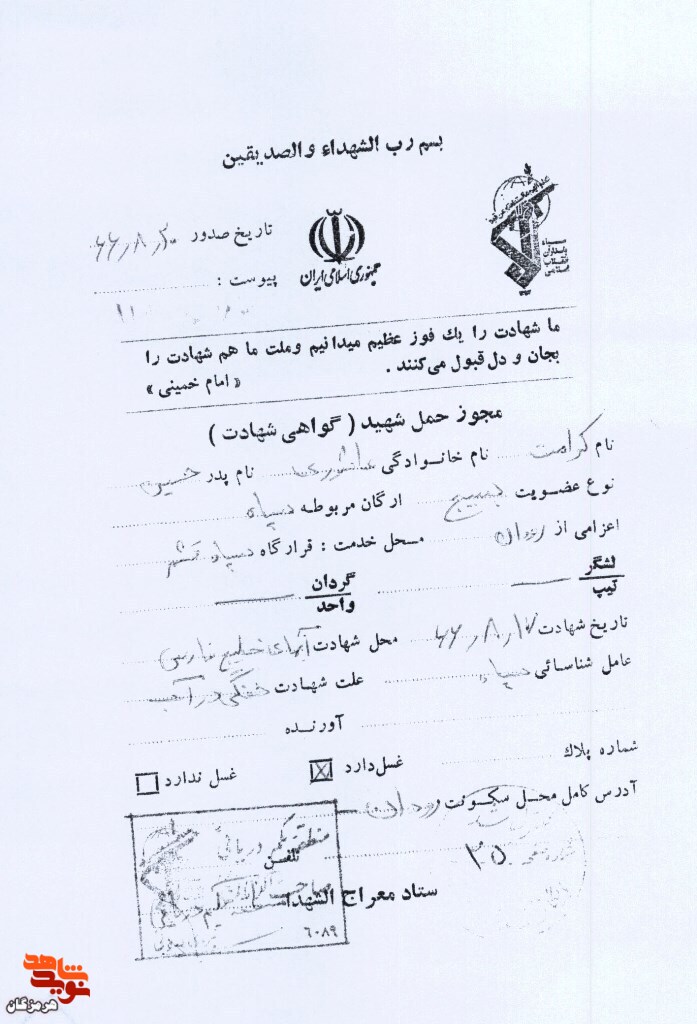 بسم رب الشهداء والصدیقین
سپاه پاسداران انقلاب اسلامی
جمهوری اسلامی ایران
تاریخ صدور ۶۶٫۸٫۲۰
پیوست :
ما شهادت را یك فوز عظیم میدانیم وملت ما هم شهادت را
بجان و دل قبول می‌کنند .
« امام خمینی »
مجوز حمل شهید ( گواهی شهادت )
نام کرامت نام خانوادگی نام پدر حسین
نوع عضویت بسیج ارگان مربوطه سپاه
اعزامی از رودان محل خدمت : قرارگاه سپاه قشم
لشگر
تیپ
گردان
واحد
تاریخ شهادت ۶۶٫۸٫ محل شهادت آبهای خلیج فارس
عامل شناسائی سپاه علت شهادت خفگی در آب
آورنده
شماره پلاك
غسل دارد ☒ غسل ندارد ☐
آدرس کامل محل سکونت رودان
تلفن
۳۵
ستاد معراج الشهداء
منطقه یکم دریائی
۶۰۸۹
نوید شاهد
هرمزگان